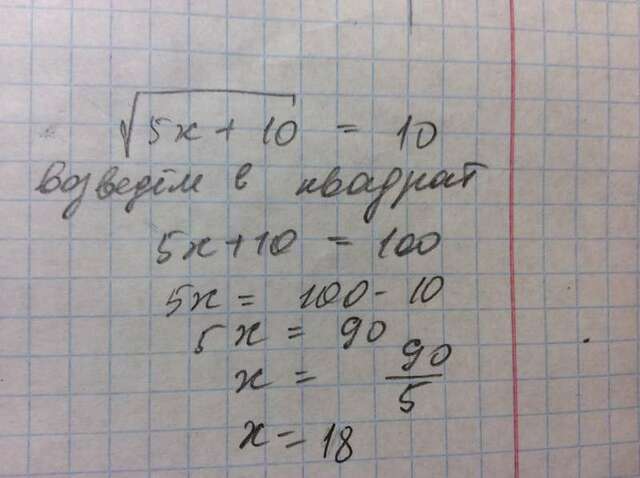 √5x + 10 = 10
возведём в квадрат
5x + 10 = 100
5x = 100 - 10
5x = 90
x = 90/5
x = 18